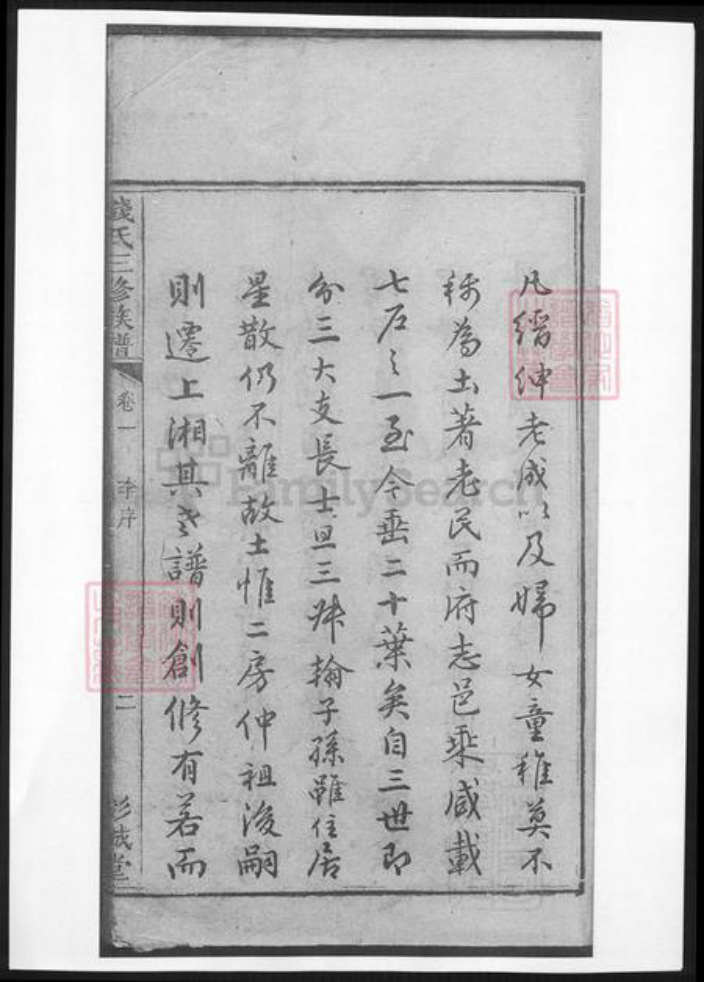 凡縉紳老成以及婦女童稚莫不
稱為土著老民而府志邑乘咸載
七石之一至今垂二十葉矣自三世即
分三大支長士旦三井翰子孫雖住居
星散仍不離故土惟二房仲祖後嗣
則遷上湘其言譜則創修有若而
錢氏三修族譜
卷一
序
二
彭城堂
FamilySearch